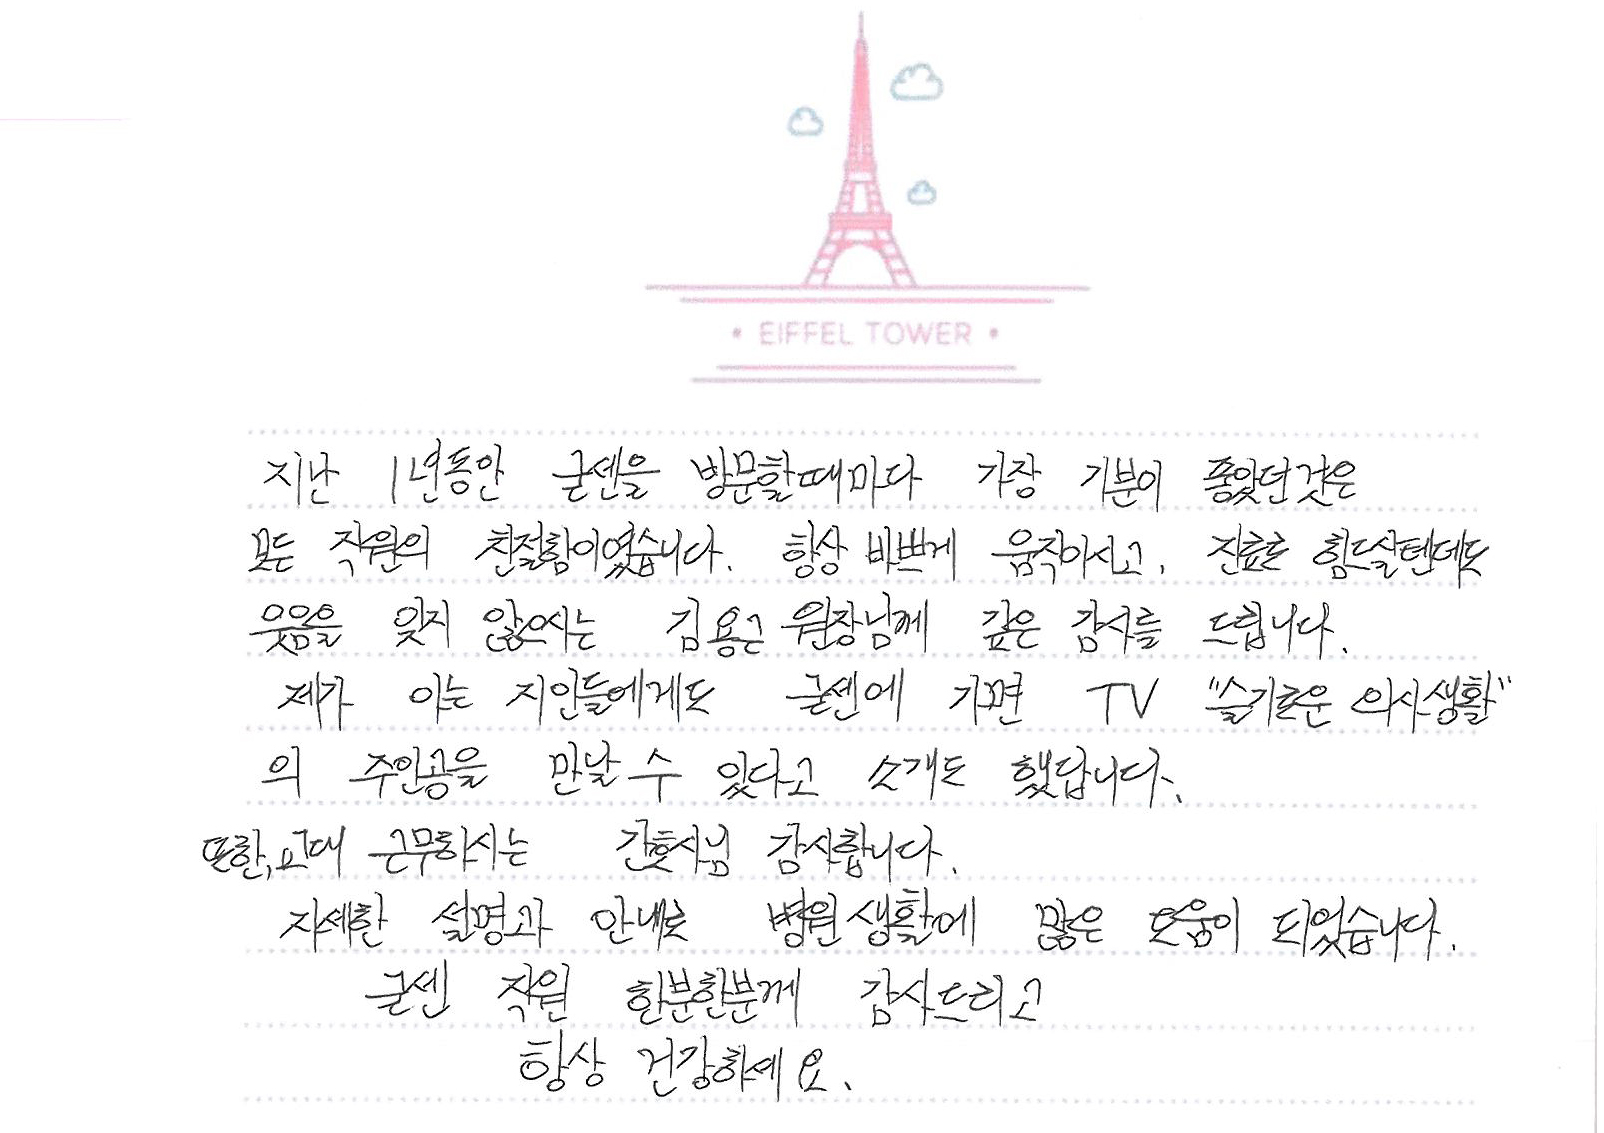 EIFFEL TOWER
지난 1년동안 굴센을 방문할때마다 가장 기분이 좋았던것은
모든 직원의 친절함이었습니다. 항상 바쁘게 움직이시고, 진료로 힘드실텐데도
웃음을 잊지 않으시는 김용근 원장님께 깊은 감사를 드립니다.
제가 아는 지인들에게도 굴센에 가면 TV "슬기로운 의사생활"
의 주인공을 만날 수 있다고 소개도 했답니다.
또한, 교대 근무하시는 간호사님 감사합니다.
자세한 설명과 안내로 병원생활에 많은 도움이 되었습니다.
굴센 직원 한분한분께 감사드리고
항상 건강하세요.